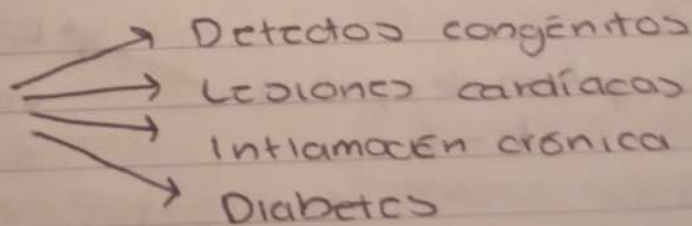 Defectos congénitos
Lesiones cardíacas
Inflamación crónica
Diabetes